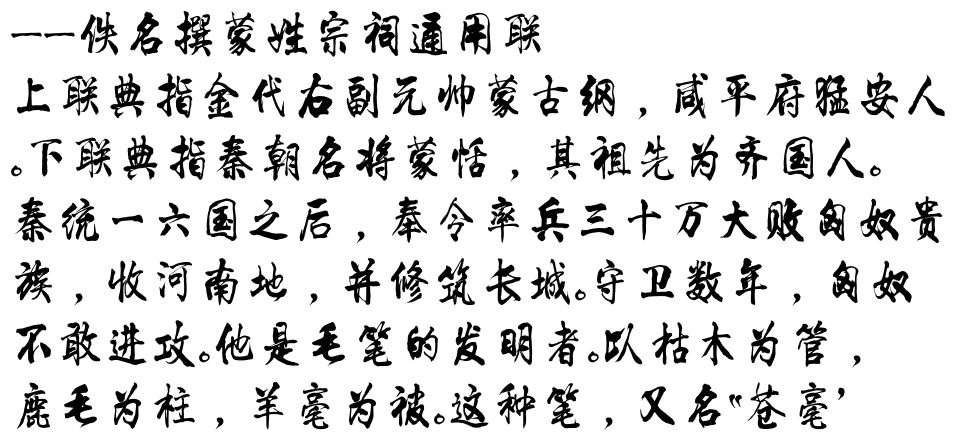 ——佚名撰蒙姓宗祠通用联
上联典指金代右副元帅蒙古纲，咸平府猛安人
。下联典指秦朝名将蒙恬，其祖先为齐国人。
秦统一六国之后，奉令率兵三十万大败匈奴贵
族，收河南地，并修筑长城。守卫数年，匈奴
不敢进攻。他是毛笔的发明者。以枯木为管，
鹿毛为柱，羊毫为被。这种笔，又名“苍毫’